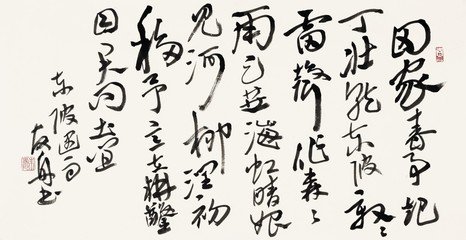 田家春事起
丁壮就东陂殷々
雷聲作森々
雨足垂海虹晴始
见河柳润初
移予意在耕鑿
因君问土宜
东陂遇雨
书